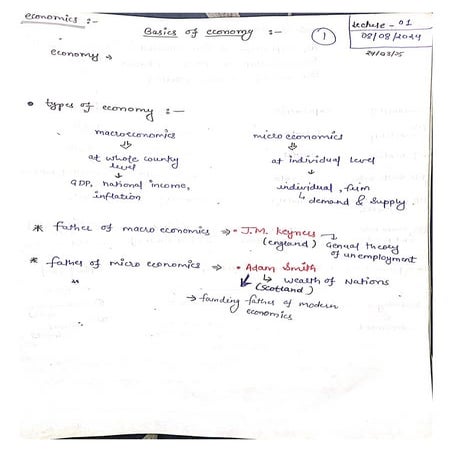 economics :-
Lecture - 01
Basics of economy :-
1
08/08/2024
economy →
24/03/25
• types of economy :-
macroeconomics
microeconomics
at whole county
level
at individual level
GDP, national income,
inflation
individual, firm
demand & supply
* father of macro economics → • J.M. Keynes
(england) Genual theory
of unemployment
* father of micro economics → • Adam Smith
↳ wealth of Nations
(Scotland)
→ founding father of modern
economics